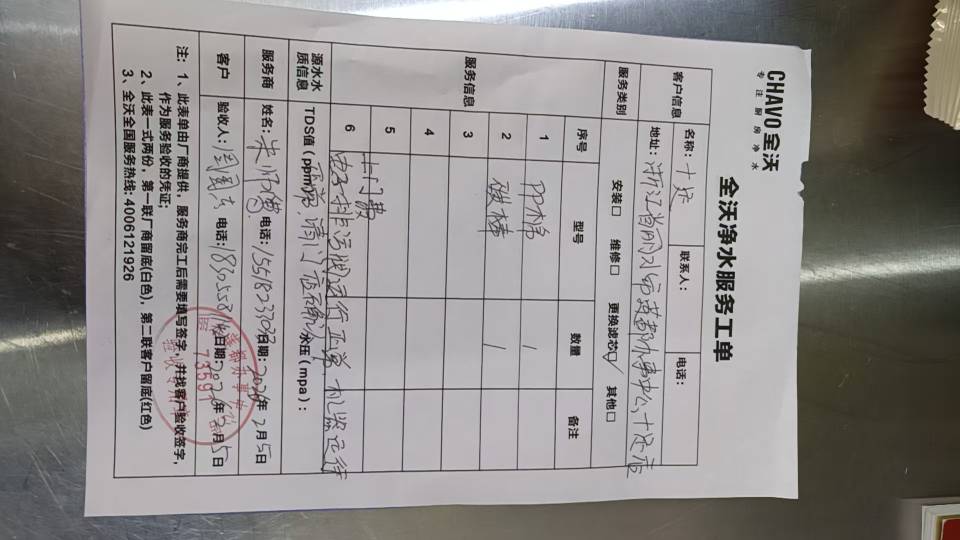 CHAVO全沃
专注厨房净水
全沃净水服务工单
客户信息
名称：十足 联系人： 电话：
地址：浙江省丽水市莲都办事中心十足店
服务类别 安装□ 维修□ 更换滤芯☑ 其他□
服务信息
序号 型号 数量 备注
1 PP棉 1
2 碳棒 1
3
4
5 上门费
6 运行正常 机器
源水水质信息 TDS值（ppm） 水压（mpa）：
服务商 姓名： 电话：15518233093 日期：2026年2月5日
客户 验收人： 电话：183 日期：2026年 月5日
7359
注：1、此表单由厂商提供，服务商完工后需要填写签字，并找客户验收签字，
作为服务验收的凭证；
2、此表一式两份，第一联厂商留底(白色)，第二联客户留底(红色)
3、全沃全国服务热线: 4006121926